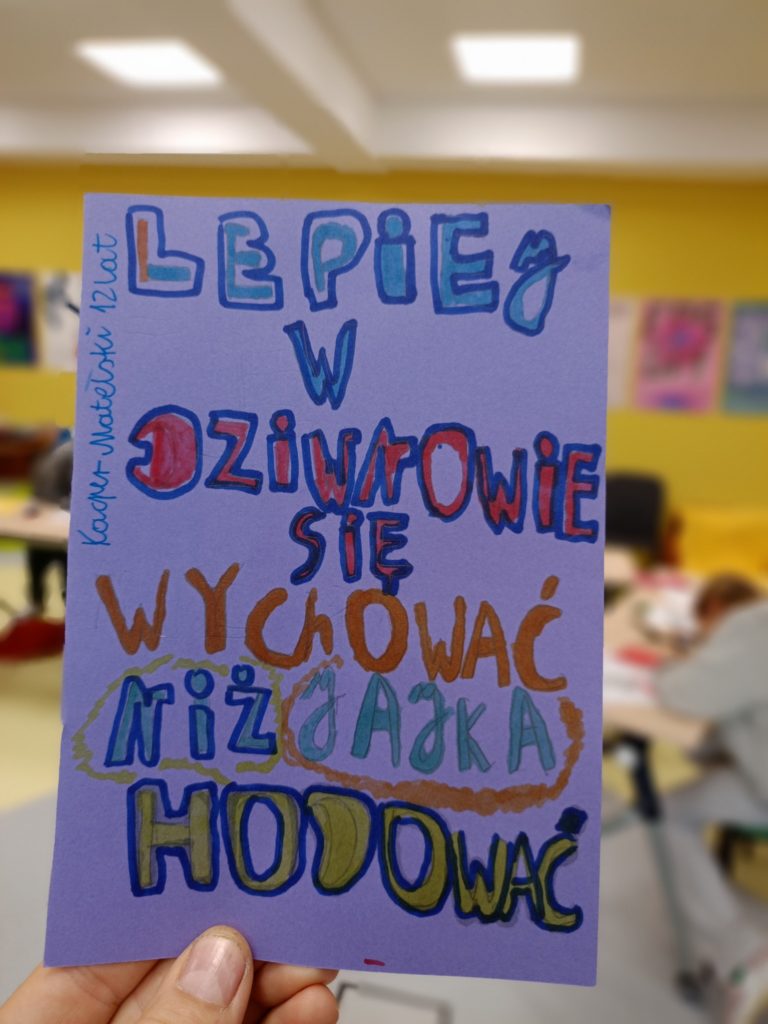 LEPIEJ
W
DZIWNOWIE
SIĘ
WYChOWAĆ
NIŻ JAJKA
HODOWAĆ
Kacper Matelski 12 lat